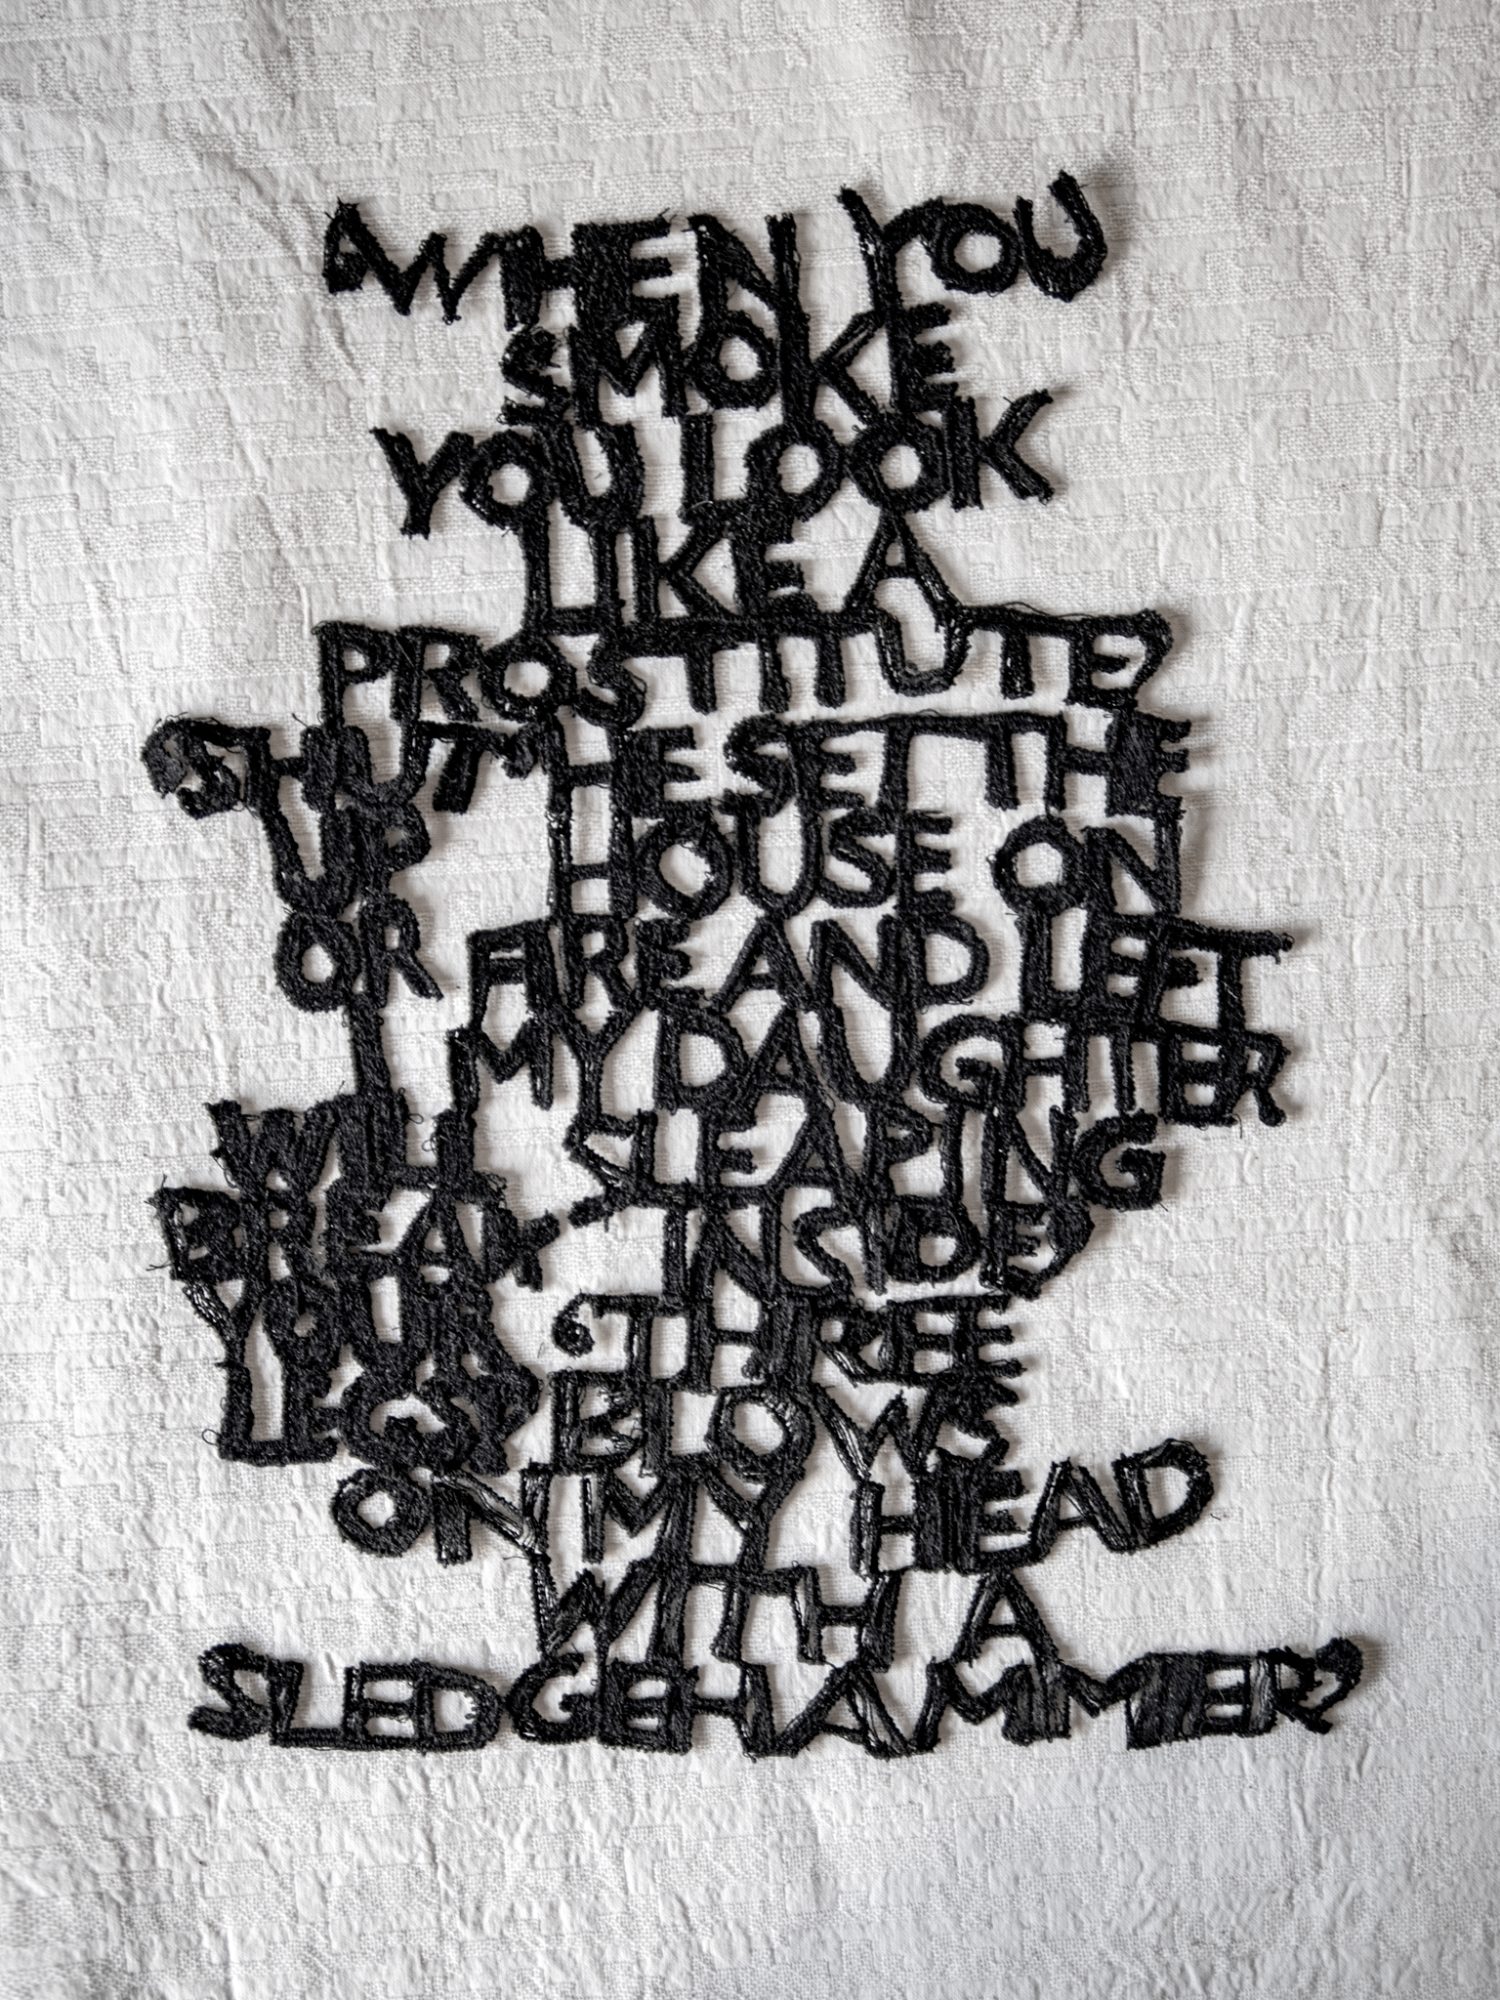 ‘WHEN YOU
SMOKE
YOU LOOK
LIKE A
PROSTITUTE’
‘SHUT
UP
OR
I
WILL
BREAK
YOUR
LEGS’
‘HE SET THE
HOUSE ON
FIRE AND LEFT
MY DAUGHTER
SLEAPING
INSIDE’
‘THREE
BLOWS
ON MY HEAD
WITH A
SLEDGEHAMMER’